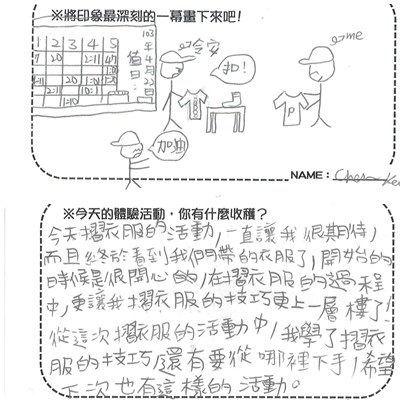 ※將印象最深刻的一幕畫下來吧!
1 2 3 4 5
103
年
4
月
23
日
值
日:
20 2:11 47
1:0
20 1:0 20
2:11 10:1
1:10
me
扣!
加油
P
NAME:
※今天的體驗活動,你有什麼收穫?
今天摺衣服的活動,一直讓我很期待,
而且終於看到我們帶的衣服了,開始的
時候是很開心的,在摺衣服的過程
中,更讓我摺衣服的技巧更上一層樓了!
從這次摺衣服的活動中,我學了摺衣
服的技巧,還有要從哪裡下手,希望
下次也有這樣的活動。